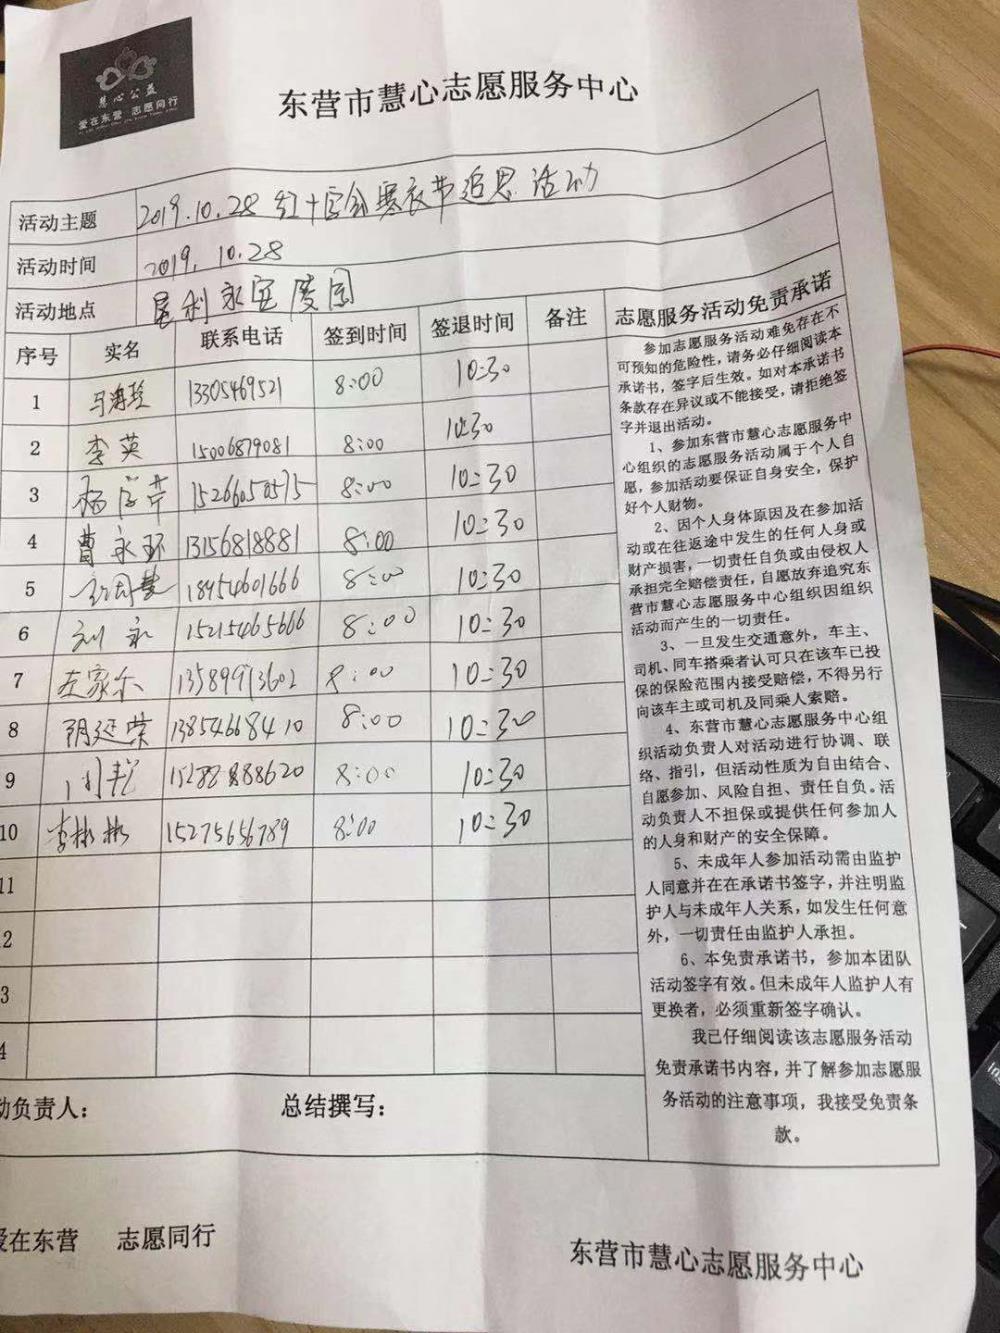 慧心公益
爱在东营 志愿同行
东营市慧心志愿服务中心
活动主题 2019.10.28 红十字会寒衣节追思活动
活动时间 2019.10.28
活动地点 垦利永安陵园
序号 实名 联系电话 签到时间 签退时间 备注
1 13305469521 8:00 10:30
2 李英 15006879081 8:00 10:30
3 15266050575 8:00 10:30
4 曹永环 13156818881 8:00 10:30
5 18454601666 8:00 10:30
6 刘永 15215465666 8:00 10:30
7 13589913602 8:00 10:30
8 胡延荣 13854668410 8:00 10:30
9 8:00 10:30
10 李彬彬 15275656789 8:00 10:30
11
2
3
4
动负责人： 总结撰写：
志愿服务活动免责承诺
参加志愿服务活动难免存在不
可预知的危险性，请务必仔细阅读本
承诺书，签字后生效。如对本承诺书
条款存在异议或不能接受，请拒绝签
字并退出活动。
1、参加东营市慧心志愿服务中
心组织的志愿服务活动属于个人自
愿，参加活动要保证自身安全，保护
好个人财物。
2、因个人身体原因及在参加活
动或在往返途中发生的任何人身或
财产损害，一切责任自负或由侵权人
承担完全赔偿责任，自愿放弃追究东
营市慧心志愿服务中心组织因组织
活动而产生的一切责任。
3、一旦发生交通意外，车主、
司机、同车搭乘者认可只在该车已投
保的保险范围内接受赔偿，不得另行
向该车主或司机及同乘人索赔。
4、东营市慧心志愿服务中心组
织活动负责人对活动进行协调、联
络、指引，但活动性质为自由结合、
自愿参加、风险自担、责任自负。活
动负责人不担保或提供任何参加人
的人身和财产的安全保障。
5、未成年人参加活动需由监护
人同意并在在承诺书签字，并注明监
护人与未成年人关系，如发生任何意
外，一切责任由监护人承担。
6、本免责承诺书，参加本团队
活动签字有效。但未成年人监护人有
更换者，必须重新签字确认。
我已仔细阅读该志愿服务活动
免责承诺书内容，并了解参加志愿服
务活动的注意事项，我接受免责条
款。
爱在东营 志愿同行
东营市慧心志愿服务中心